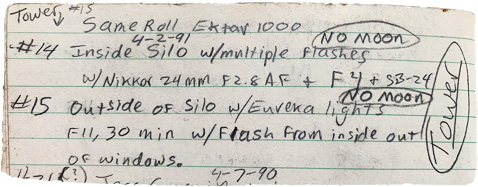 Tower #15
Same Roll Ektar 1000
4-2-91 NO MOON
#14 Inside Silo w/multiple flashes
w/Nikkor 24mm F2.8 AF + F4 + SB-24
NO MOON
#15 Outside of Silo w/Eureka lights
F11, 30 min w/Flash from inside out
of windows.
4-7-90
Tower